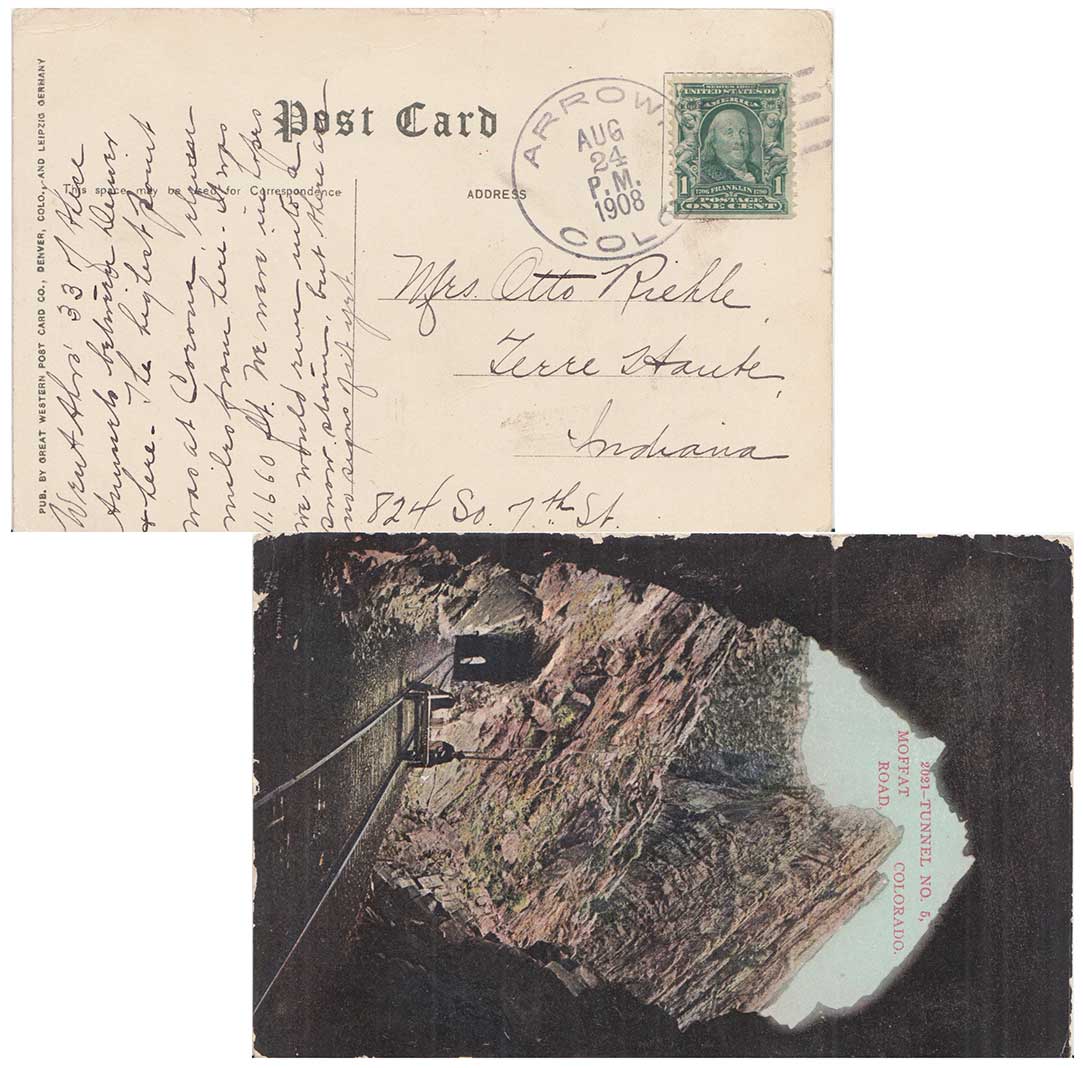 Post Card
This space may be used for Correspondence
ADDRESS
PUB. BY GREAT WESTERN POST CARD CO., DENVER, COLO., AND LEIPZIG GERMANY
ARROW,
AUG
24
P.M.
1908
COLO
SERIES 1902
UNITED STATES OF
AMERICA
1 1706 FRANKLIN 1790 1
POSTAGE
ONE CENT
Went thru' 33 of these
tunnels between Denver
& here. The highest point
was at Corona, eleven
miles from here. It was
11,660 ft. We were in hopes
we would run into a
snow storm, but there are
no signs of it yet.
Mrs. Otto Riehle,
Terre Haute,
Indiana
824 So. 7th St.
2021—TUNNEL NO. 5,
MOFFAT COLORADO.
ROAD,